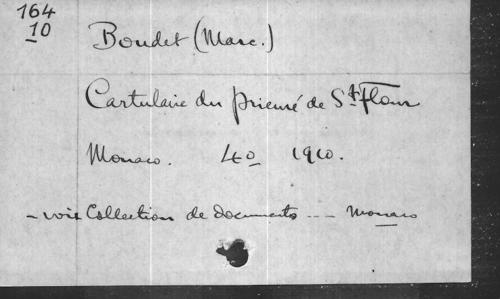 164
10
Boudet (Marc.)
Cartulaire du prieuré de St Flour
Monaco. 4o 1910.
- voir Collection de documents - - - Monaco